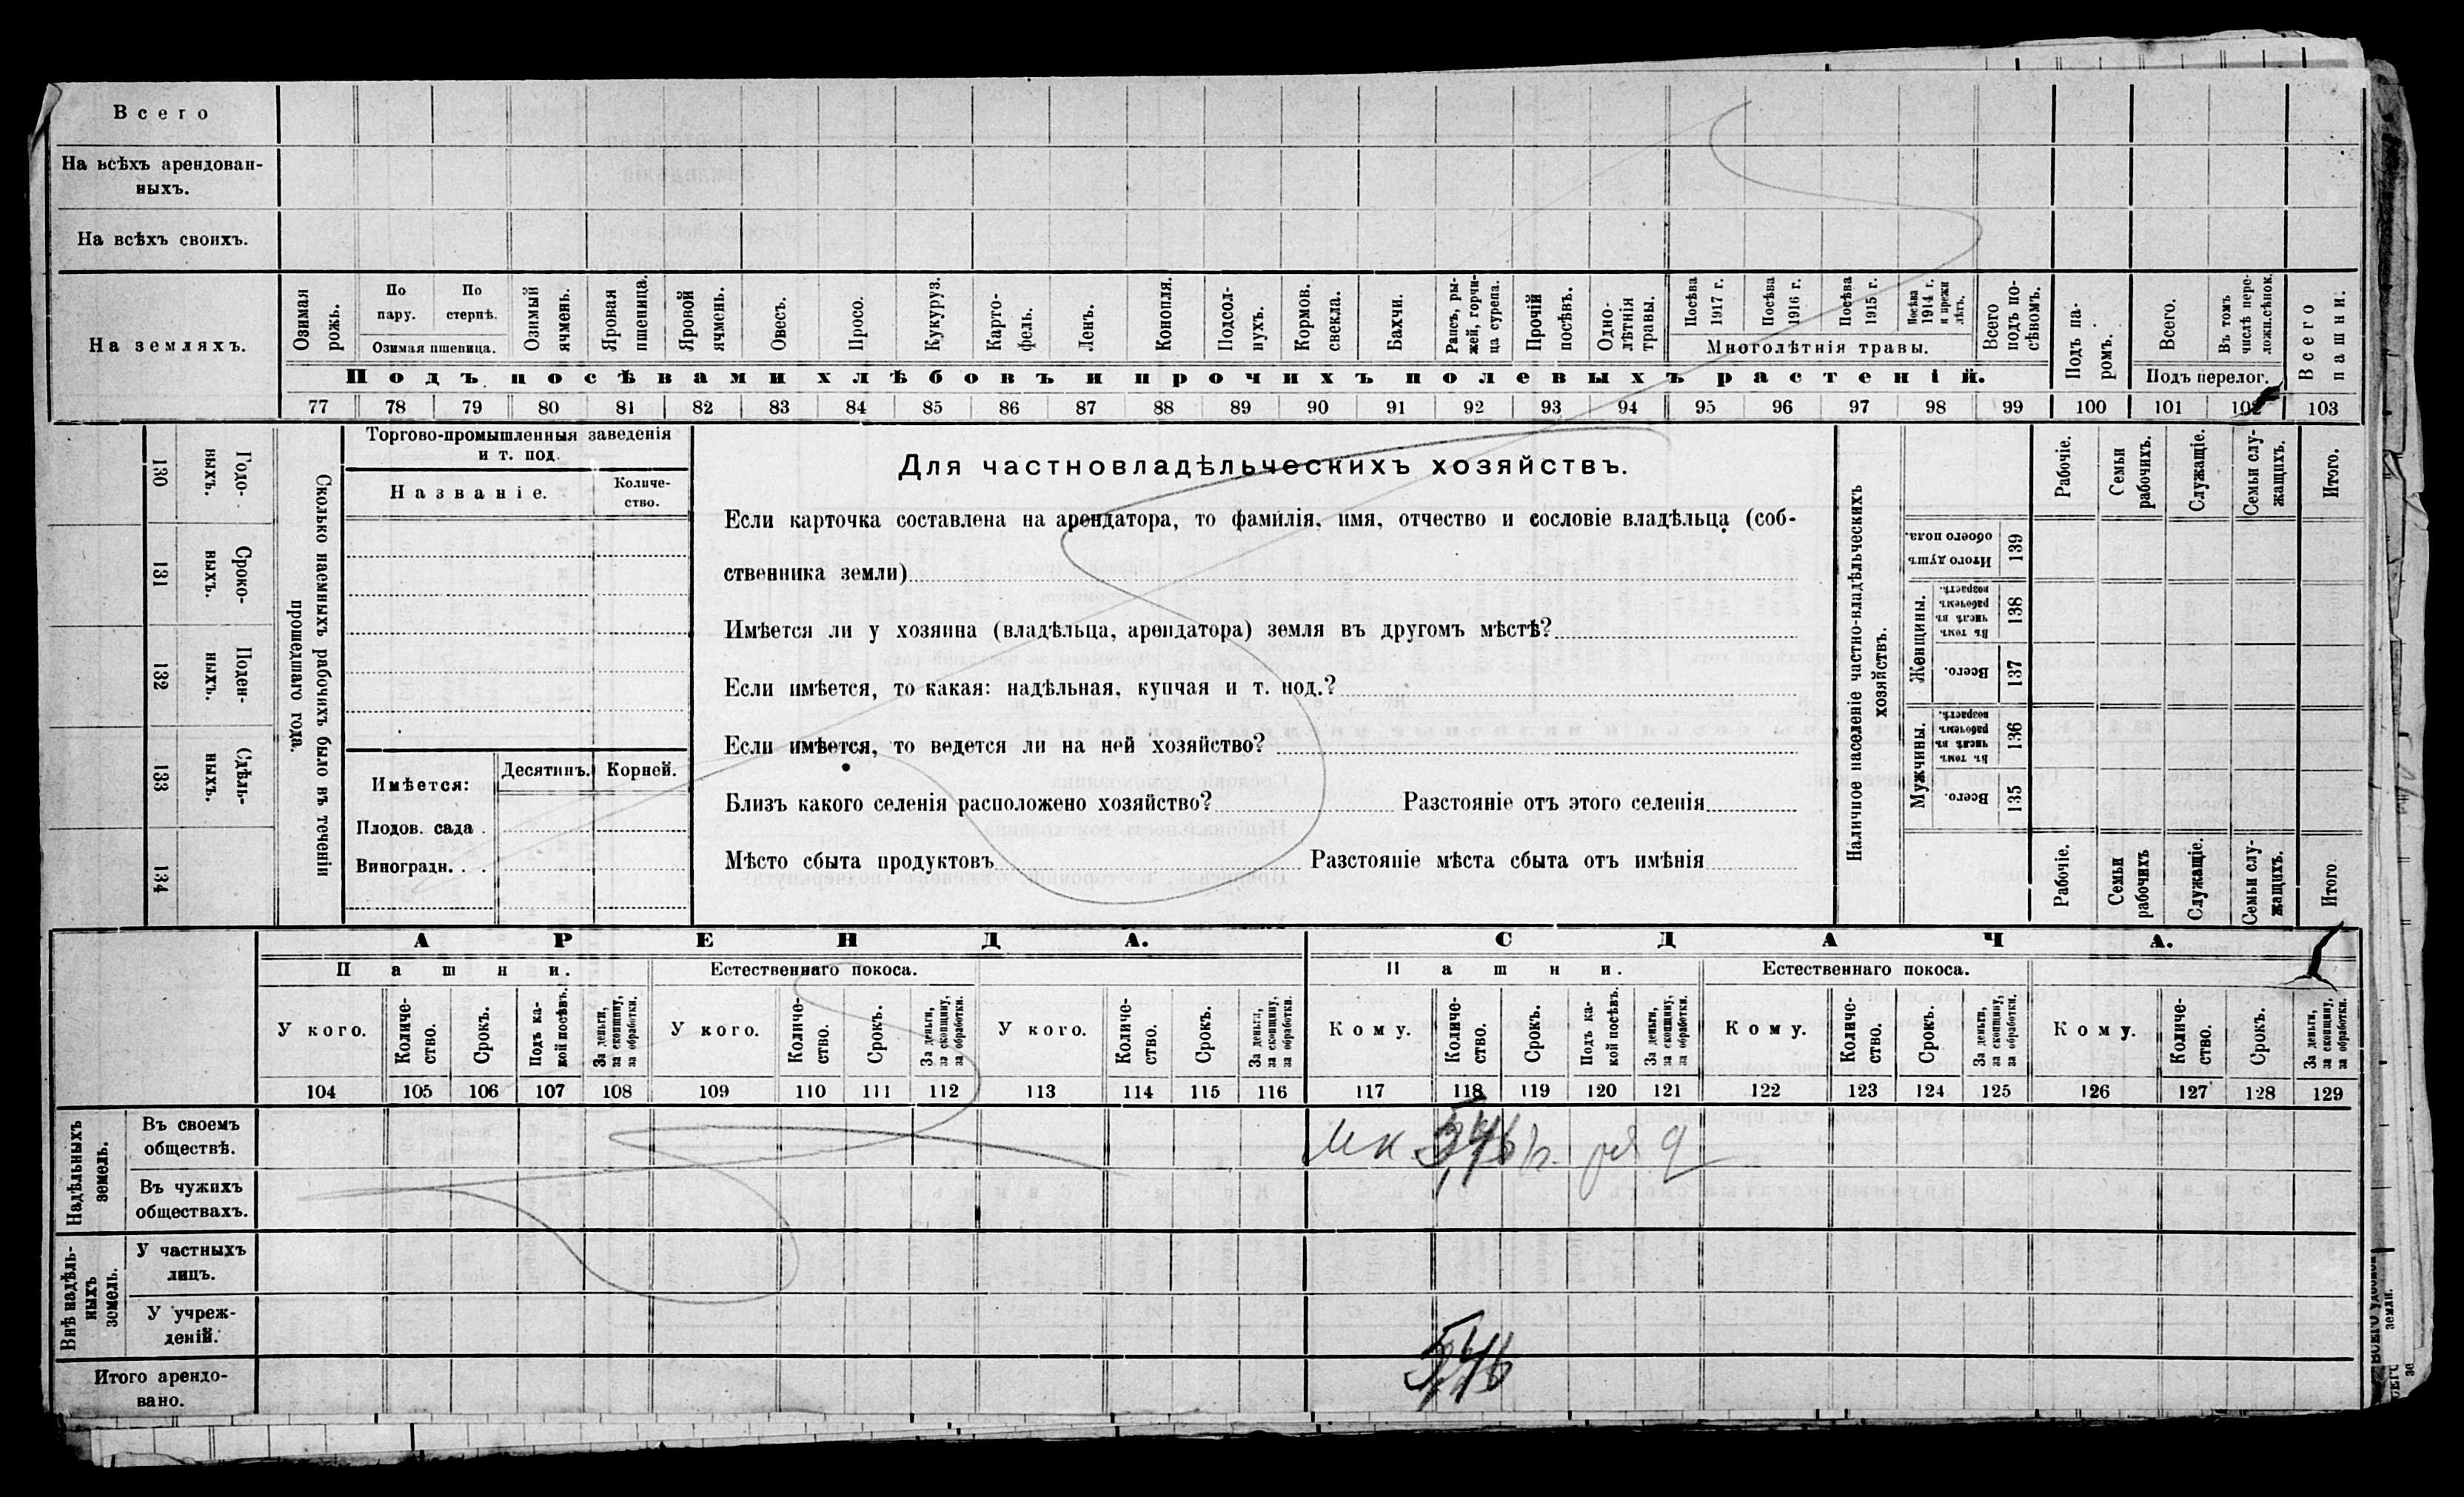 Всего
На всѣхъ арендован-
ныхъ.
На всѣхъ своихъ.
На земляхъ.
Озимая рожь.
По пару.
По стернѣ.
Озимая пшеница.
Озимый ячмень.
Яровая пшеница.
Яровой ячмень.
Овесъ.
Просо.
Кукуруз.
Карто-
фель.
Ленъ.
Конопля.
Подсол-
нухъ.
Кормов. свекла.
Бахчи.
Рапсъ, ры-
жей, горчи-
ца сурепа.
Прочій посѣвъ.
Одно-
лѣтнія травы.
Посѣва 1917 г.
Посѣва 1916 г.
Посѣва 1915 г.
Посѣва 1914 г. и прежн лѣтъ.
Многолѣтнія травы.
Всего подъ по-
сѣвомъ.
Подъ па-
ромъ.
Всего.
Въ томъ числѣ пере-
ложн.сѣнок.
Подъ перелог.
Всего пашни.
Подъ посѣвами хлѣбовъ и прочихъ полевыхъ растеній.
77 78 79 80 81 82 83 84 85 86 87 88 89 90 91 92 93 94 95 96 97 98 99 100 101 102 103
130 Годо-
ныхъ.
131 Сроко-
ныхъ.
132 Поден-
ныхъ.
133 Сдѣль-
ныхъ.
134
Сколько наемныхъ рабочихъ было въ теченіи
прошедшаго года.
Торгово-промышленныя заведенія
и т. под.
Названіе.
Количе-
ство.
Имѣется:
Десятинъ.
Корней.
Плодов. сада .
Виноградн. . .
Для частновладѣльческихъ хозяйствъ.
Если карточка составлена на арендатора, то фамилія, имя, отчество и сословіе владѣльца (соб-
ственника земли)
Имѣется ли у хозяина (владѣльца, арендатора) земля въ другомъ мѣстѣ?
Если имѣется, то какая: надѣльная, купчая и т. под.?
Если имѣется, то ведется ли на ней хозяйство?
Близъ какого селенія расположено хозяйство? Разстояніе отъ этого селенія
Мѣсто сбыта продуктовъ Разстояніе мѣста сбыта отъ имѣнія
Наличное населеніе частно-владѣльческихъ
хозяйствъ.
Рабочіе.
Семьи рабочихъ.
Служащіе.
Семьи слу-
жащихъ.
Итого.
Итого душъ обоего пола.
139
Женщины.
Въ томъ числѣ въ рабочемъ возрастѣ.
138
Всего.
137
Мужчины.
Въ томъ числѣ въ рабочемъ возрастѣ.
136
Всего.
135
Рабочіе.
Семьи рабочихъ
Служащіе.
Семьи слу-
жащихъ.
Итого
АРЕНДА.
СДАЧА.
Пашни.
Естественнаго покоса.
Пашни.
Естественнаго покоса.
У кого.
Количе-
ство.
Срокъ.
Подъ ка-
кой посѣвъ.
За деньги, за скопщину, за обработки.
У кого.
Количе-
ство.
Срокъ.
За деньги, за скопщину, за обработки.
У кого.
Количе-
ство.
Срокъ.
За деньги, за скопщину, за обработки.
Кому.
Количе-
ство.
Срокъ.
Подъ ка-
кой посѣвъ.
За деньги, за скопщину, за обработки.
Кому.
Количе-
ство.
Срокъ.
За деньги, за скопщину, за обработки.
Кому.
Количе-
ство.
Срокъ.
За деньги, за скопщину, за обработки.
104 105 106 107 108 109 110 111 112 113 114 115 116 117 118 119 120 121 122 123 124 125 126 127 128 129
Надѣльныхъ земель.
Въ своемъ
обществѣ.
Въ чужихъ
обществахъ.
Внѣ надѣль-
ныхъ земель.
У частныхъ
лицъ.
У учреж-
деній.
Итого арендо-
вано.